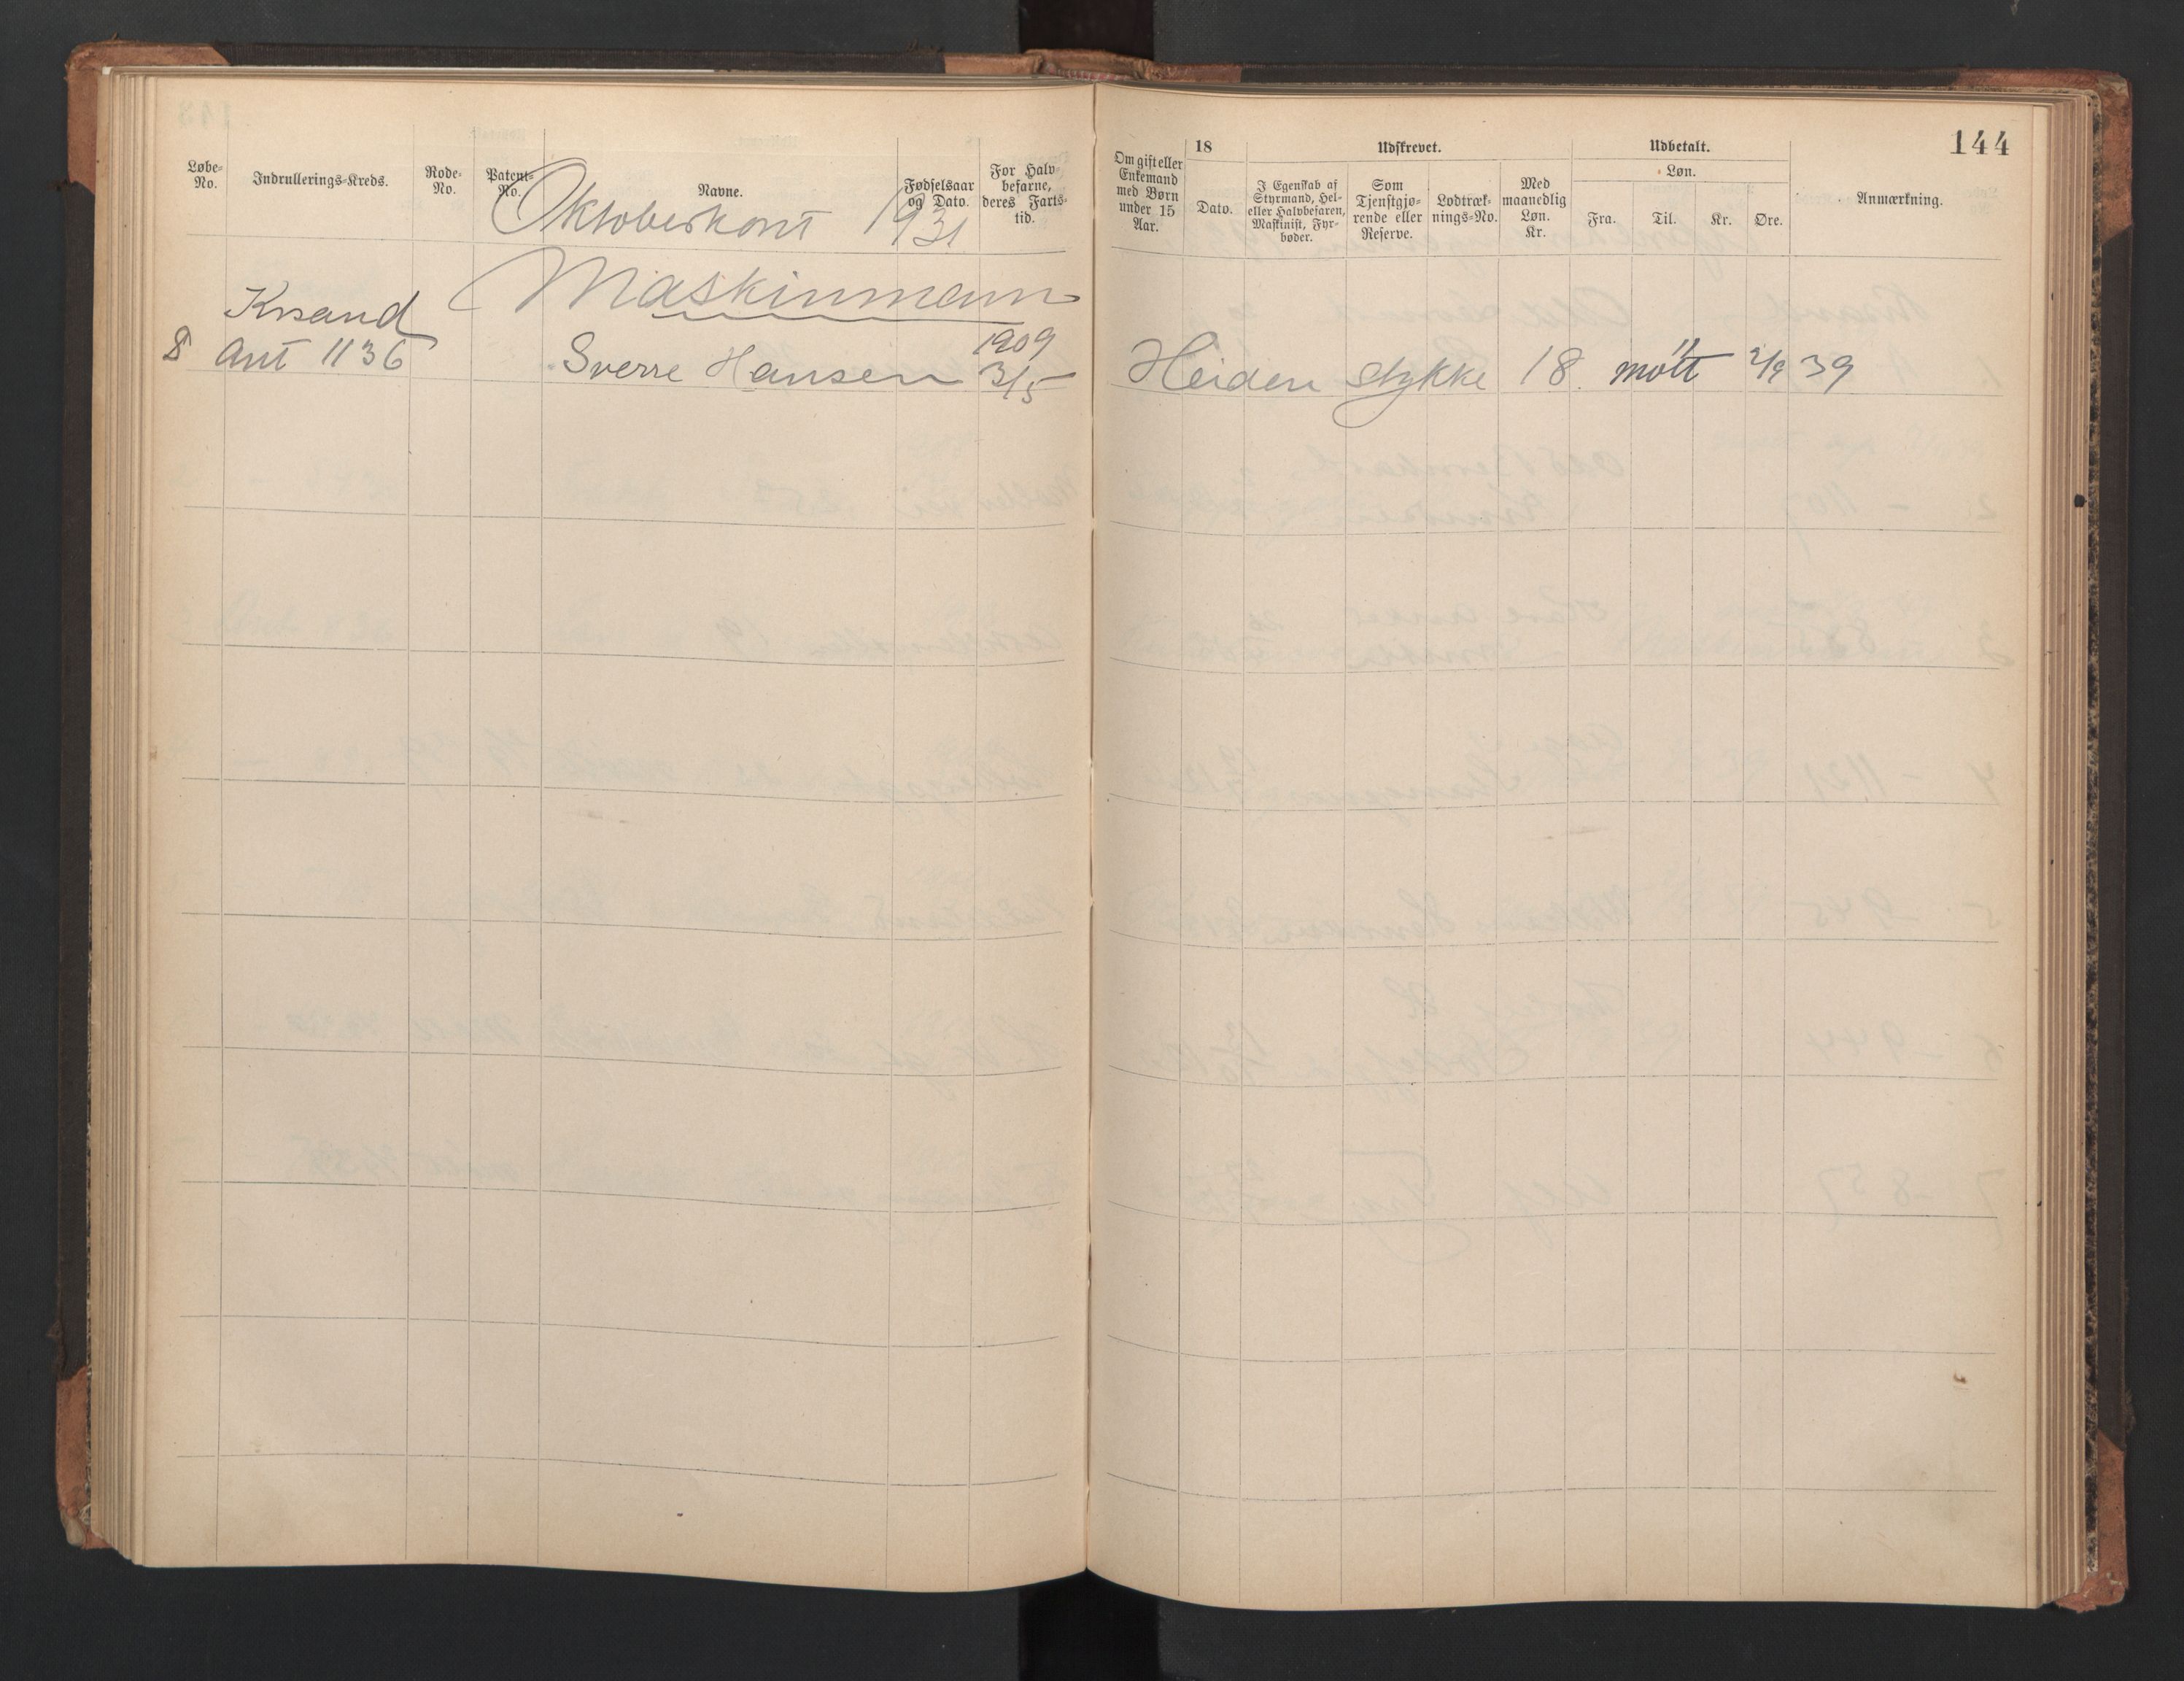 Løbe-No.
Indrullerings-Kreds.
Rode-No.
Patent-No.
Navne.
Fødselsaar og Dato.
For Halvbefarne, deres Fartstid.
Oktoberkont 1931
Maskinmann
Krsand
8 Ant 1136 Sverre Hansen 1909 3/5
144
Om gift eller Enkemand med Børn under 15 Aar.
18
Dato.
Udskrevet.
I Egenskab af Styrmand, Hel- eller Halvbefaren, Maskinist, Fyrbøder.
Som Tjenstgjørende eller Reserve.
Lodtræknings-No.
Med maanedlig Løn. Kr.
Udbetalt.
Løn.
Fra. Til. Kr. Øre.
Anmærkning.
Heiden stykke 18. møtt 2/9 39